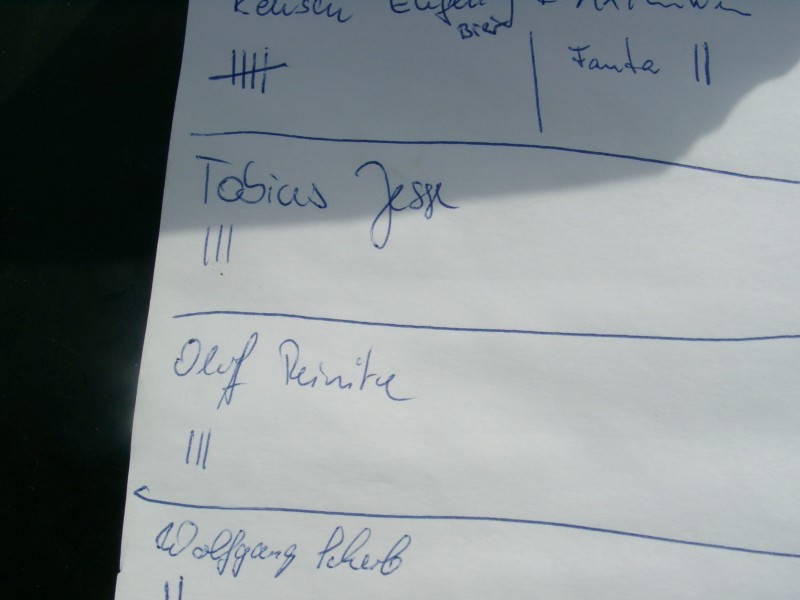 Bier
Fanta ||
Tobias Jesse
|||
Olaf Reinitz
|||
Wolfgang Scherb
||